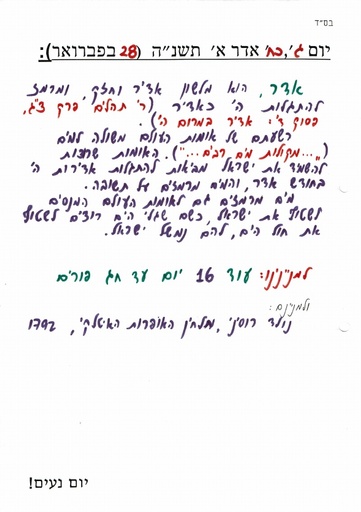 בס״ד
יום ג׳, כח׳ אדר א׳ תשנ״ה (28 בפברואר):
אדר, הוא מלשון אדיר וחזק, ומרמז
להתגלות ה׳ כאדיר, (ר׳ תהלים פרק צ״ג,
פסוק ד׳: אדיר במרום ה׳).
רשעתם של אומות העולם משולה למים
("...מקולות מים רבים..."). האומות שרוצות
להשמיד את ישראל מביאות להתגלות אדירות ה׳
בחודש אדר, והמים מרמזים על תשובה.
מים מרמזים גם לאומות העולם המנסים
לשטוף את ישראל, כשם שגלי הים רוצים לשטוף
את חול הים, להם נמשל ישראל.
למניינו: עוד 16 יום עד חג פורים
ולמניינם:
נולד רוסיני, מלחין האופרות האיטלקי, 1792
יום נעים!